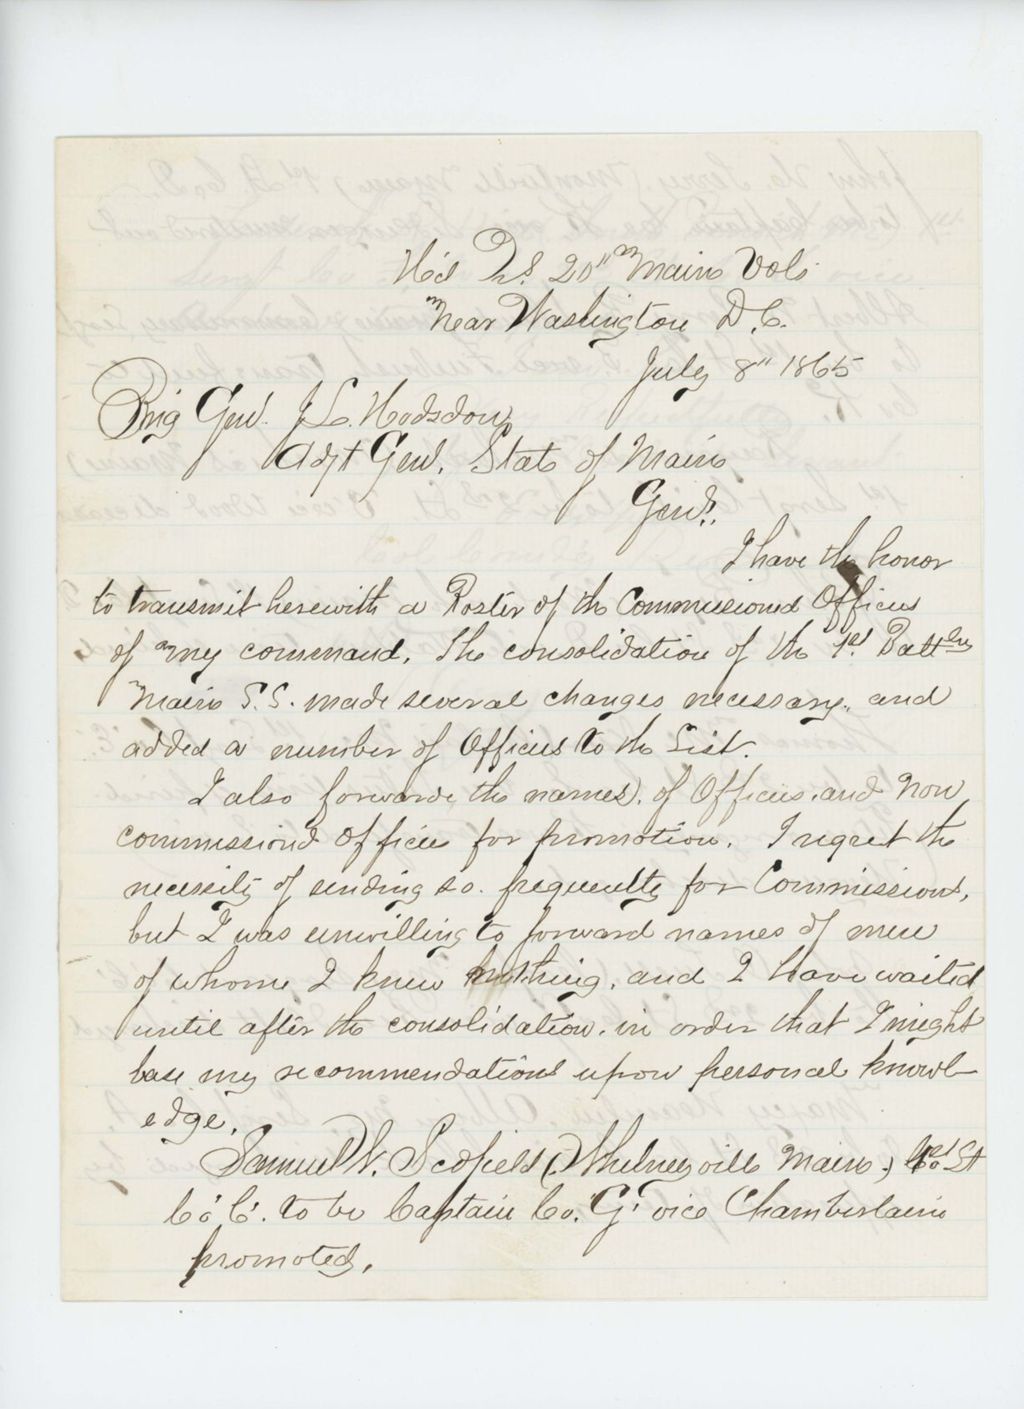 Hd Qrs. 20" Maine Vols
Near Washington D.C.
July 8" 1865
Brig Genl. J L. Hodsdon
Adjt Genl. State of Maine
Genl.
I have the honor
to transmit herewith a Roster of the Commissioned Officers
of my command. The consolidation of the 1st Battln
Maine S.S. made several changes necessary, and
added a number of Officers to the List.
I also forward, the names, of Officers, and Non
commissiond officers for promotion. I regret the
necessity of sending so frequently for Commissions,
but I was unwilling to forward names of men
of whom I knew nothing, and I have waited
until after the consolidation, in order that I might
base my recommendations upon personal knowl-
edge.
Samuel W. Scofield (Whitneyville Maine) 1st Lt
Co. C. to be Captain Co. "G" vice Chamberlain
promoted.